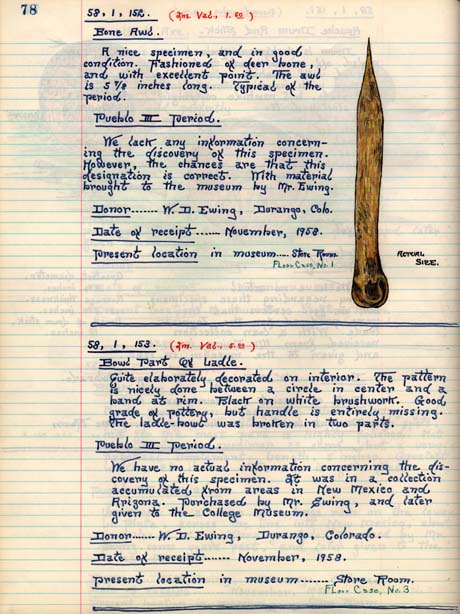 78
58, 1, 152. (Ins. Val., 1.50)
Bone Awl.
A nice specimen, and in good
condition. Fashioned of deer bone,
and with excellent point. The awl
is 5 7/8 inches long. Typical of the
period.
Pueblo III Period.
We lack any information concern-
ing the discovery of this specimen.
However, the chances are that this
designation is correct. With material
brought to the museum by Mr. Ewing.
Donor....... W. D. Ewing, Durango, Colo.
Date of receipt...... November, 1958.
Present location in museum.... Store Room.
Floor Case, No. 1
Actual
Size.
58, 1, 153. (Ins. Val., 5.00)
Bowl Part Of Ladle.
Quite elaborately decorated on interior. The pattern
is nicely done between a circle in center and a
band at rim. Black on white brushwork. Good
grade of pottery, but handle is entirely missing.
The ladle-bowl was broken in two parts.
Pueblo III Period.
We have no actual information concerning the dis-
covery of this specimen. It was in a collection
accumulated from areas in New Mexico and
Arizona. Purchased by Mr. Ewing, and later
given to the College Museum.
Donor...... W. D. Ewing, Durango, Colorado.
Date of receipt....... November, 1958.
Present location in museum ....... Store Room.
Floor Case, No. 3